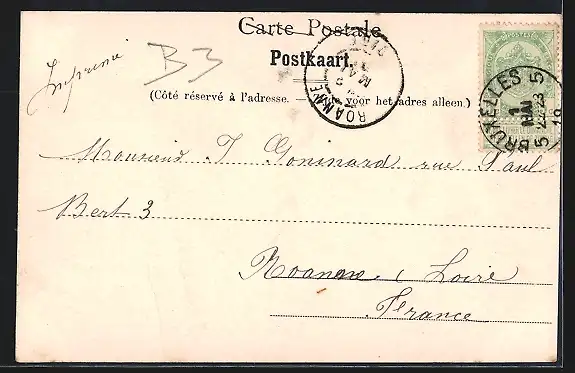 Carte Postale
Postkaart
Imprimé
B3
(Côté réservé à l'adresse. — voor het adres alleen.)
ROANNE
BRUXELLES 5
1 MAI
Monsieur J Goninard rue Paul
Bert 3
Roanne (Loire
France